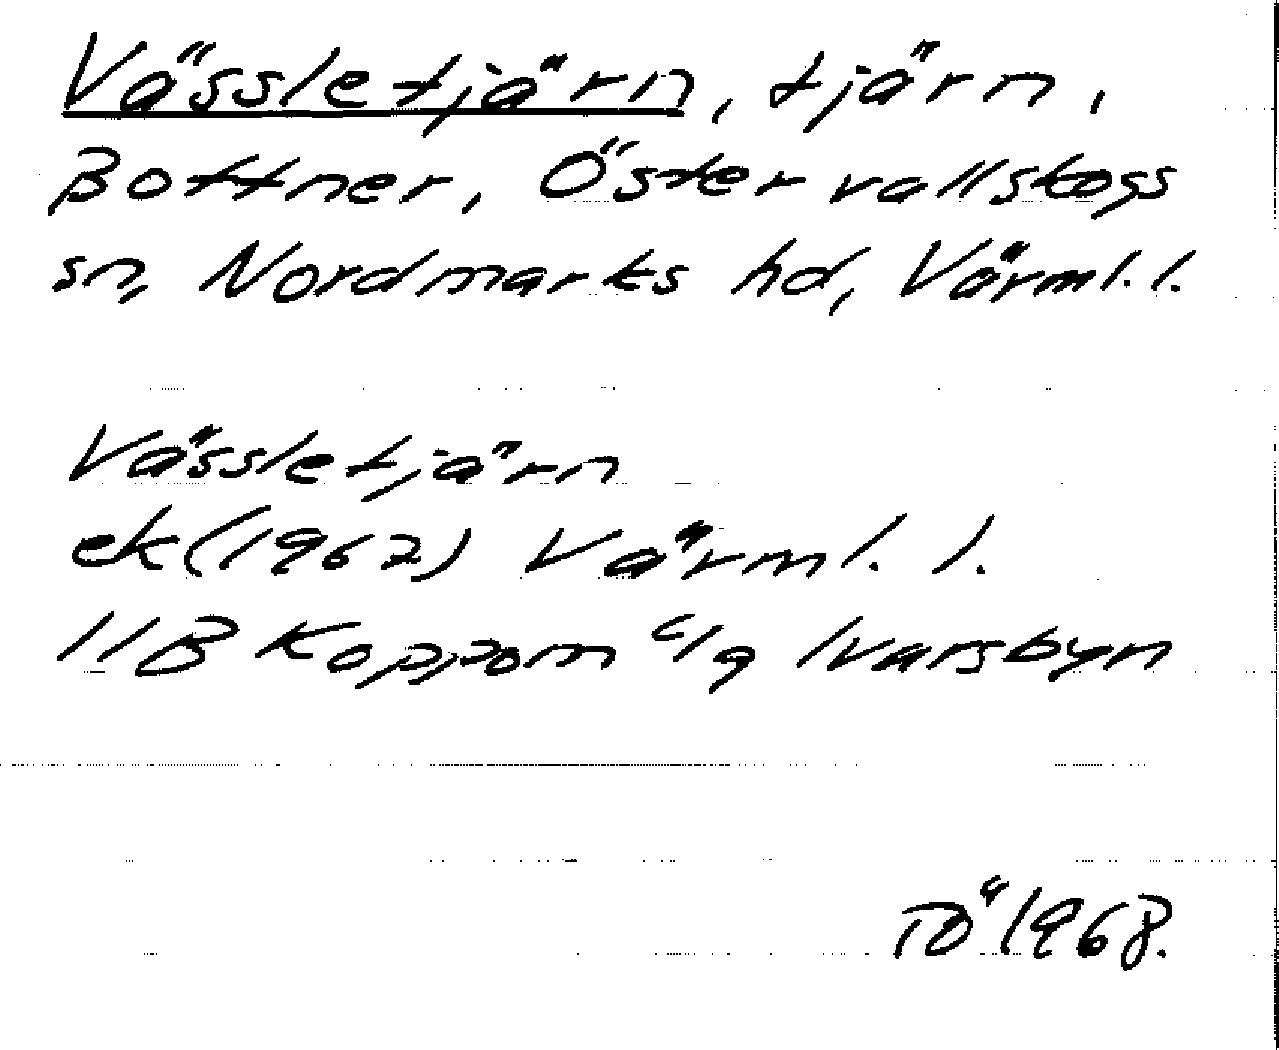 Vässletjärn, tjärn,
Bottner, Östervallskogs
sn, Nordmarks hd, Värml. l.
Vässletjärn
ek (1962) Värml. l.
11B Koppom c/g Ivarsbyn
TÖ 1968.